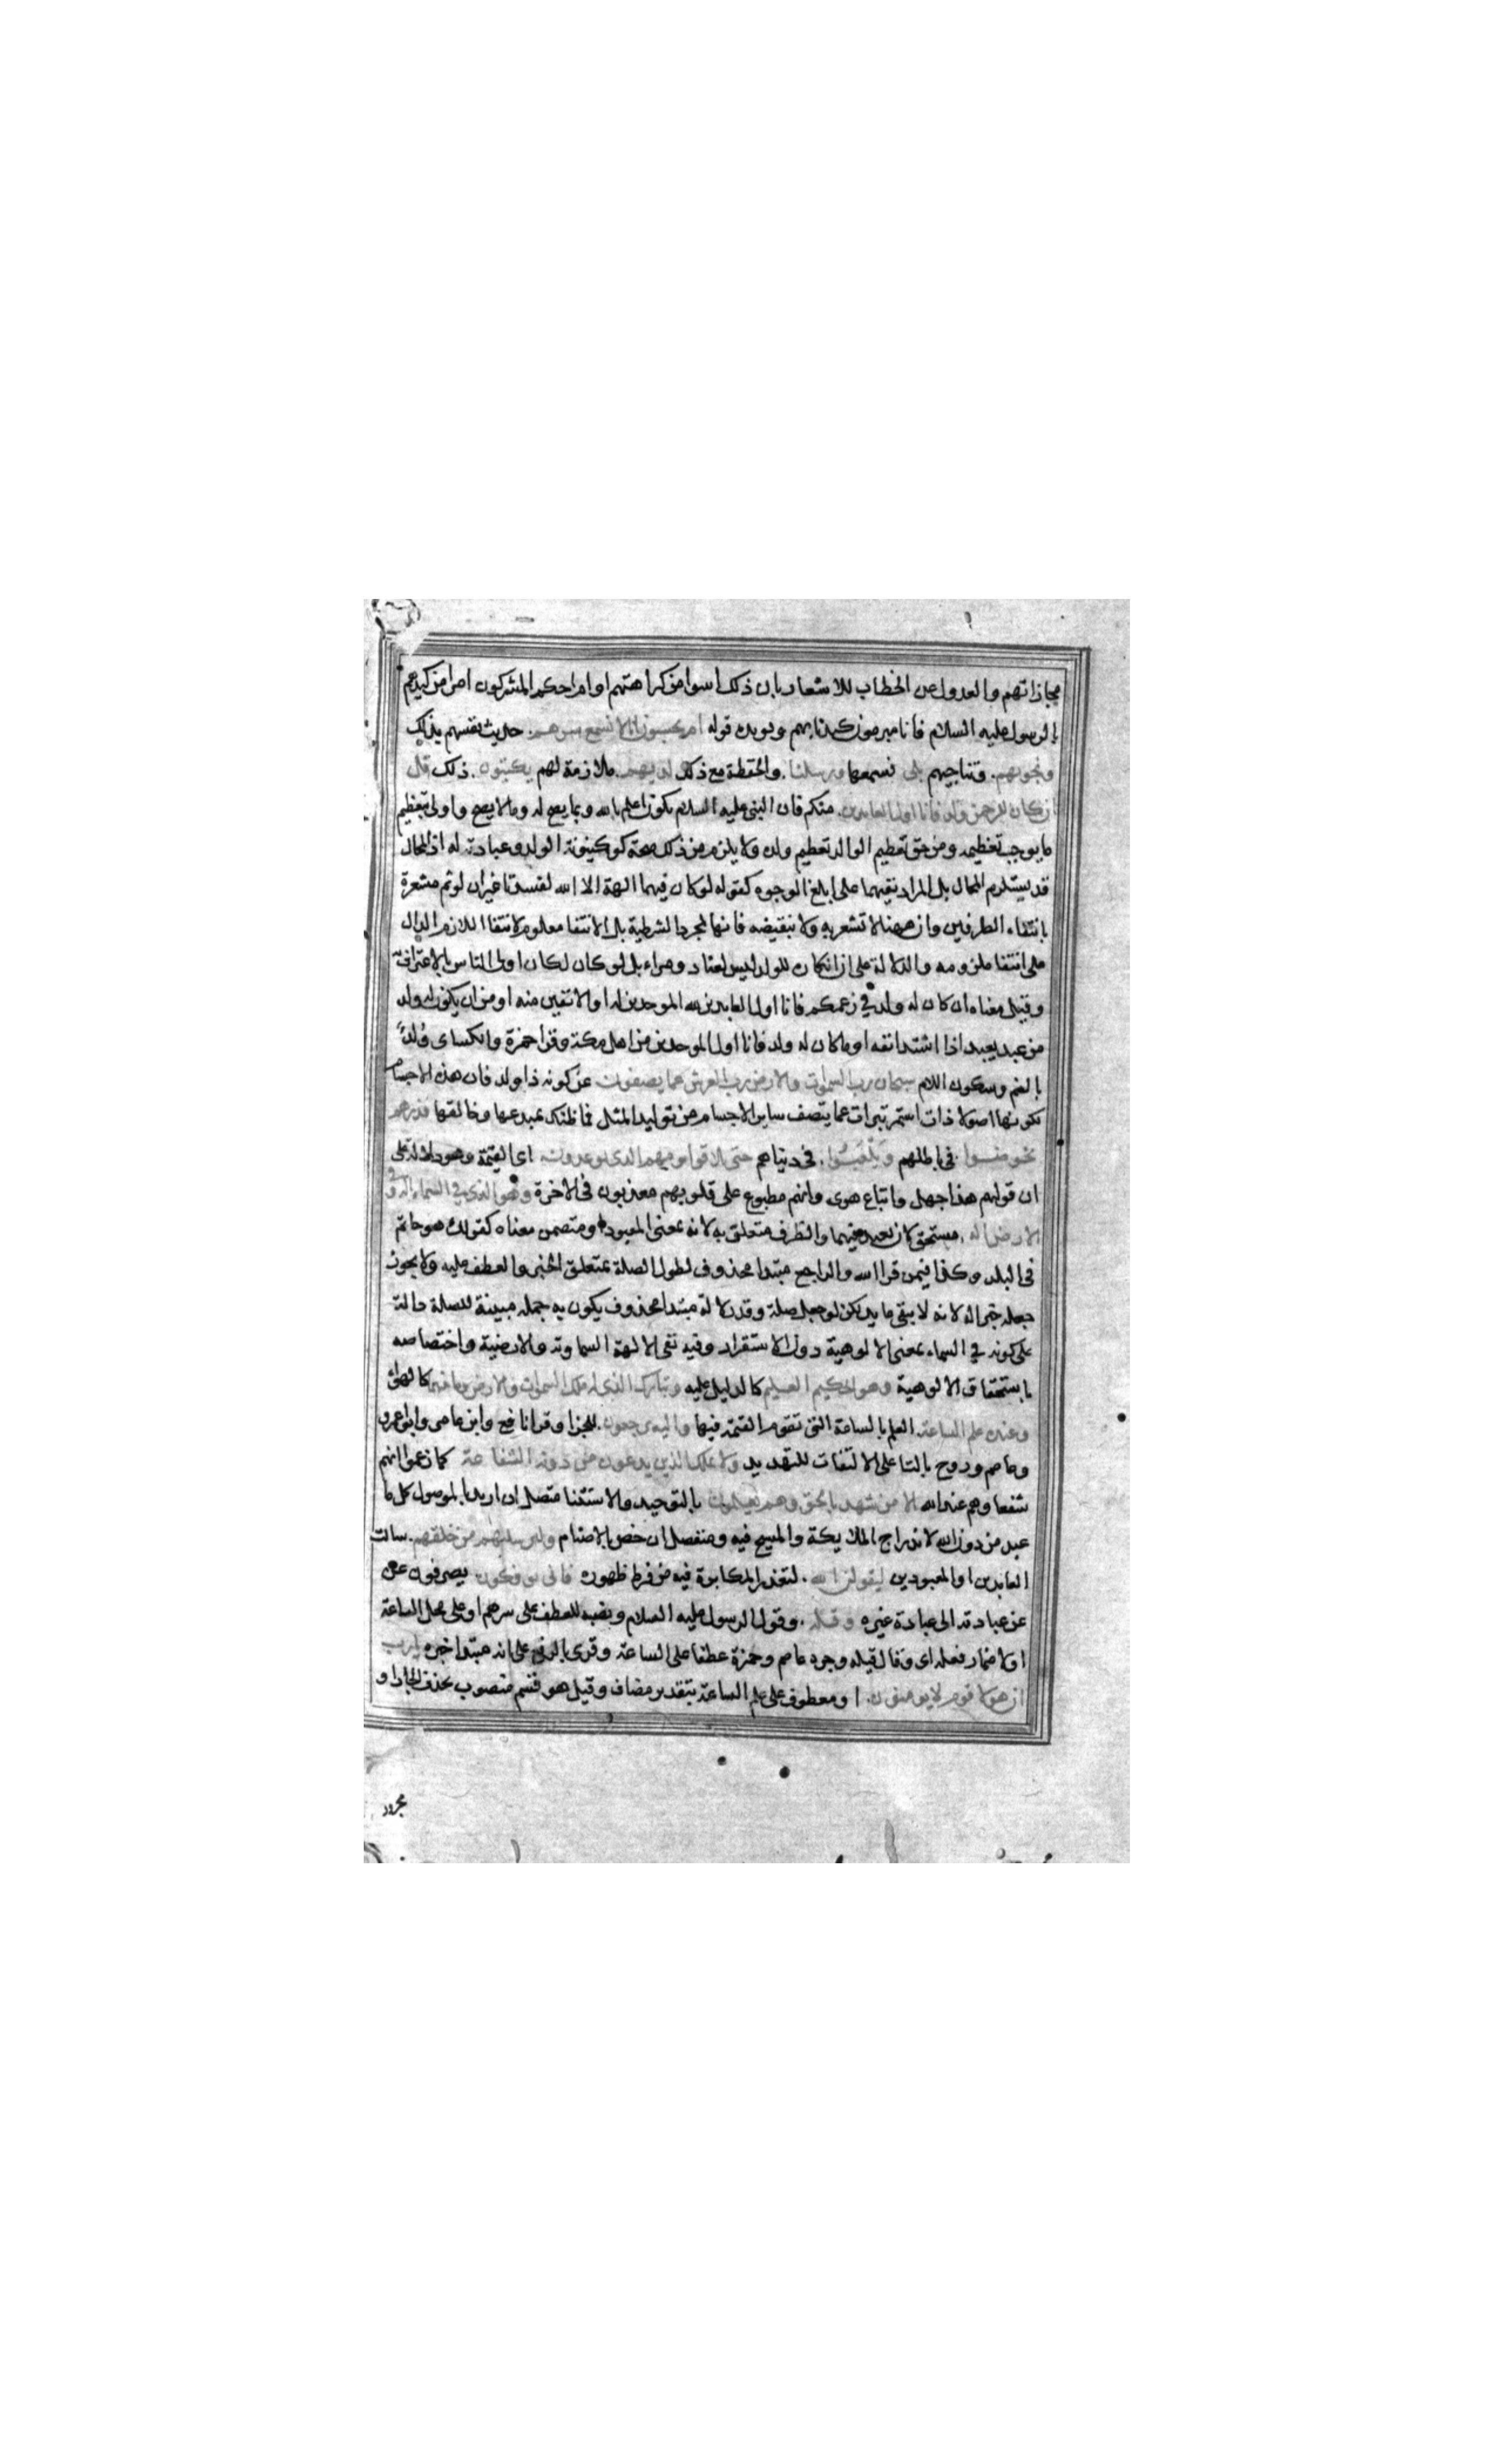 مجازاتهم والعدول عن الخطاب للاشعار بان ذلك اسوا من كراهتهم او ام احكم المشركون امرا من كيدهم
بالرسول عليه السلام فانا مبرمون كيدنا بهم ويويده قوله ام يحسبون انا لا نسمع سرهم. حديث نفسهم بذلك
ونجويهم. وتناجيهم بلى نسمعها ورسلنا. والحفظة مع ذلك لديهم. ملازمة لهم يكتبون. ذلك قل
ان كان للرحمن ولد فانا اول العابدين. منكم فان النبى عليه السلام يكون اعلم بالله وبما يصح له وما لا يصح واولى بتعظيم
ما يوجب تعظيمه ومن حق تعظيم الوالد تعظيم ولده ولا يلزم من ذلك صحة كينونة الولد وعبادته له اذ المحال
قد يستلزم المحال بل المراد نفيهما على ابلغ الوجوه كقوله لو كان فيهما الهة الا الله لفسدتا غير ان لو ثم مشعرة
بانتفاء الطرفين وان ههنا لا تشعر به ولا بنقيضه فانها لمجرد الشرطية بل الانتفا معلوم لانتفا اللازم الدال
على انتفا ملزومه والدلالة على ان انكاره للولد ليس لعناد ومراء بل لو كان لكان اولى الناس بالاعتراف
وقيل معناه ان كان له ولد في زعمكم فانا اول العابدين لله الموحدين له او الانفين منه او من ان يكون له ولد
من عبد يعبد اذا اشتد انفه او ما كان له ولد فانا اول الموحدين من اهل مكة وقرا حمزة والكساى وُلدٌ
بالضم وسكون اللام سبحان رب السموات والارض رب العرش عما يصفون عن كونه ذا ولد فان هذه الاجسام
لكونها اصولا ذات استمر تبرات عما يتصف ساير الاجسام من توليد المثل فما ظنك بمبدعها وخالقها فذرهم
يخوضوا. فى باطلهم ويلعبوا. فى دنياهم حتى يلاقوا يومهم الذى يوعدون. اى القيمة وهو دلالة على
ان قولهم هذا جهل واتباع هوى وانهم مطبوع على قلوبهم معذبون فى الاخرة وهو الذى في السماء اله وفى
الارض اله. مستحق لان يعبد فيهما والظرف متعلق به لانه بمعنى المعبود او متضمن معناه كقولك هو حاتم
فى البلد وكذا فيمن قرا الله والراجع مبتدا محذوف لطول الصلة بمتعلق الخبر والعطف عليه ولا يجوز
جعله خبرا له لانه لا يبقى عايد لكن لو جعل صلة وقدر لاله مبتدا محذوف يكون به جملة مبينة للصلة دالة
على كونه في السماء بمعنى الالوهية دون الاستقرار وفيه نفى الالهة السماوية والارضية واختصاصه
باستحقاق الالوهية وهو الحكيم العليم كالدليل عليه وتبارك الذى له ملك السموات والارض وما بينهما كالهواء
وعنده علم الساعة. العلم بالساعة التى تقوم القيمة فيها واليه يرجعون. للجزا وقرا نافع وابن عامر وابو عمرو
وعاصم وروح بالتا على الالتفات للتهديد ولا يملك الذين يدعون من دونه الشفاعة كما زعموا انهم
شفعاوهم عند الله الا من شهد بالحق وهم يعلمون بالتوحيد والاستثنا متصل ان اريد بالموصول كل ما
عبد من دون الله لاندراج الملايكة والمسيح فيه ومنفصل ان خص بالاصنام ولئن سالتهم من خلقهم. سالت
العابدين او المعبودين ليقولن الله. لتعذر المكابرة فيه من فرط ظهوره فانى يوفكون يصرفون عن
عن عبادته الى عبادة غيره وقيله. وقول الرسول عليه السلام ونصبه للعطف على سرهم او على محل الساعة
او لاضمار فعله اى وقال قيله وجره عاصم وحمزة عطفا على الساعة وقرى بالرفع على انه مبتدا خبره يا رب
ان هولا قوم لا يومنون. او معطوف على علم الساعة بتقدير مضاف وقيل هو قسم منصوب بحذف الجار او
مجرور